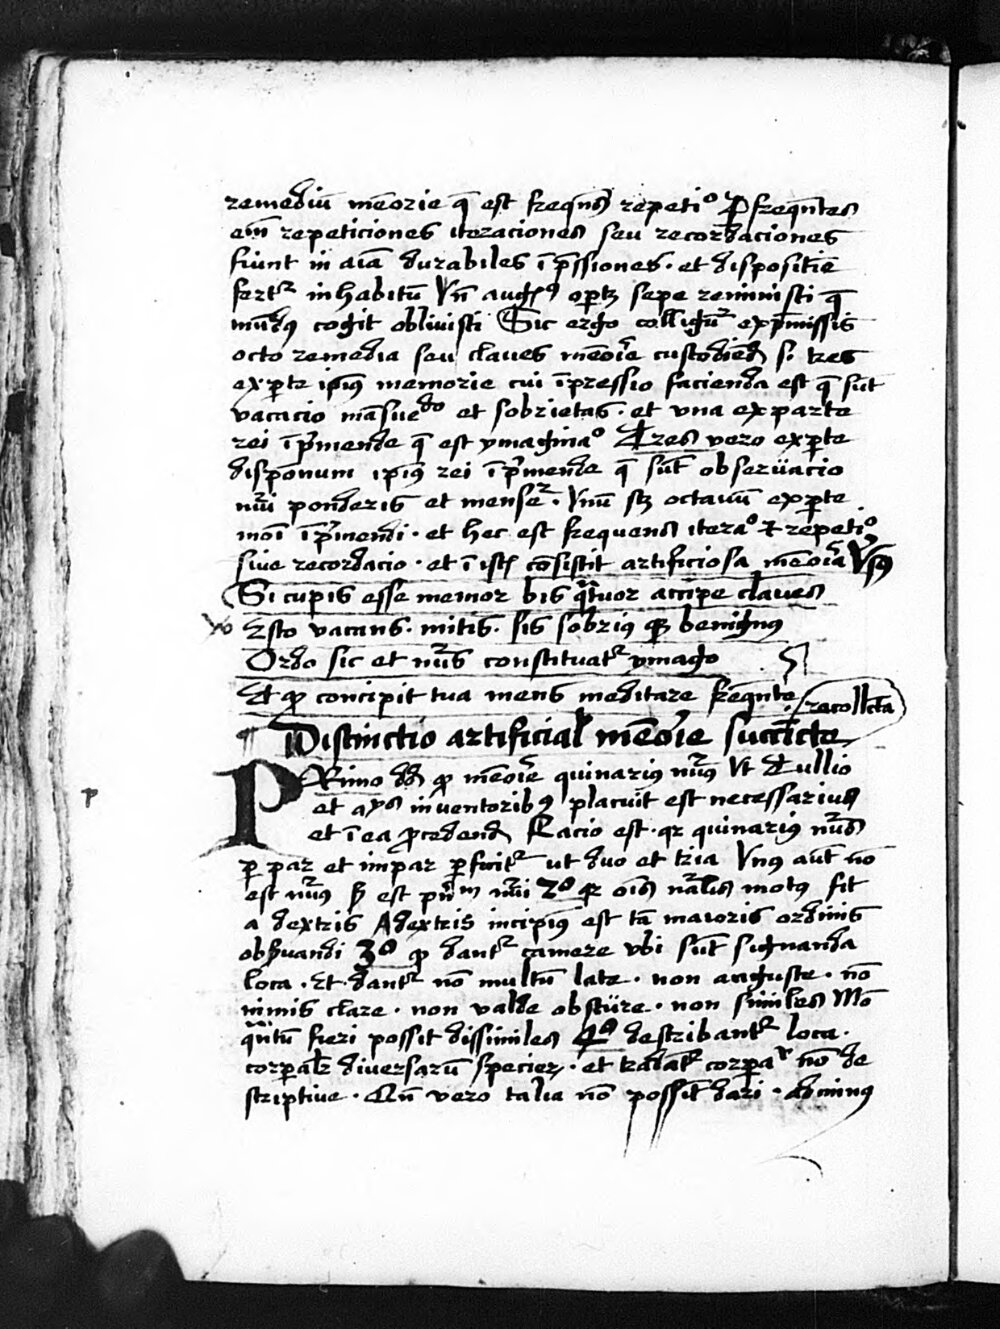 remediū mēorie q̄ est freqn̄s repetiº Per freqn̄tes
eīn repeticiones iteraciones seu recordaciones
fiunt in aīa durabiles īpssiones · et dispositiē
fertʳ inhabitū Vn̄ opꝫ sepe reminisci q̄
cogit oblivisci Sic ergo colligūʳ expmissis
octo remedia seu claves mēorie custodiēd s· tres
exparte ipiꝰ memorie cui īpressio facienda est q̄ sūt
vacacio māsuedo et sobrietas · et vna exparte
rei īpmende q̄ est ymaginaº Tres vero exparte
disponum ipiꝰ rei īpmende q̄ sūt observacio
nūi ponderis et mensuʳ · Vnū sꝫ octavū exparte
moī īpmendi · et hec est frequens iteraº et repetiº
sive recordacio · et ī istꝭ consistit artificiosa mēoria Vsꝰ
Si cupis esse memor bis q̄tuor accipe claves
Esto vacans · mitis · sis sobriꝰ qꝫ benignus
Ordo sic et nūs constituatʳ ymago
Et qꝫ concipit tua mens meditare freqn̄te
recollcta
Distinctio artificial mēorie succīcta
PRimo qꝫ mēorie quinariꝰ nūꝰ Vt Tullio
et inventoribꝰ placuit est necessarius
et ī ea pcedend Racio est · qꝛ quinariꝰ nūs
p par et impar pficitʳ ut duo et tria Vnꝰ aūt nō
est nūꝰ sꝫ est pn̄ nūi 2º qꝛ oīs nālis motꝰ fit
a dextris A dextris incipiꝰ est tā maioris ordinis
obsvandi 3º qꝫ dantʳ camere vbi sūt signanda
loca · Et dantʳ nō multū late · non anguste · nō
nimis clare · non valde obscure · non similes Mō
q̄ntū fieri possit dissimiles 4º describantʳ loca ·
corpalr diversarū specier · et tradatʳ corpaʳ nō de
scriptive · Qn̄ vero talia nō possūt dari ·